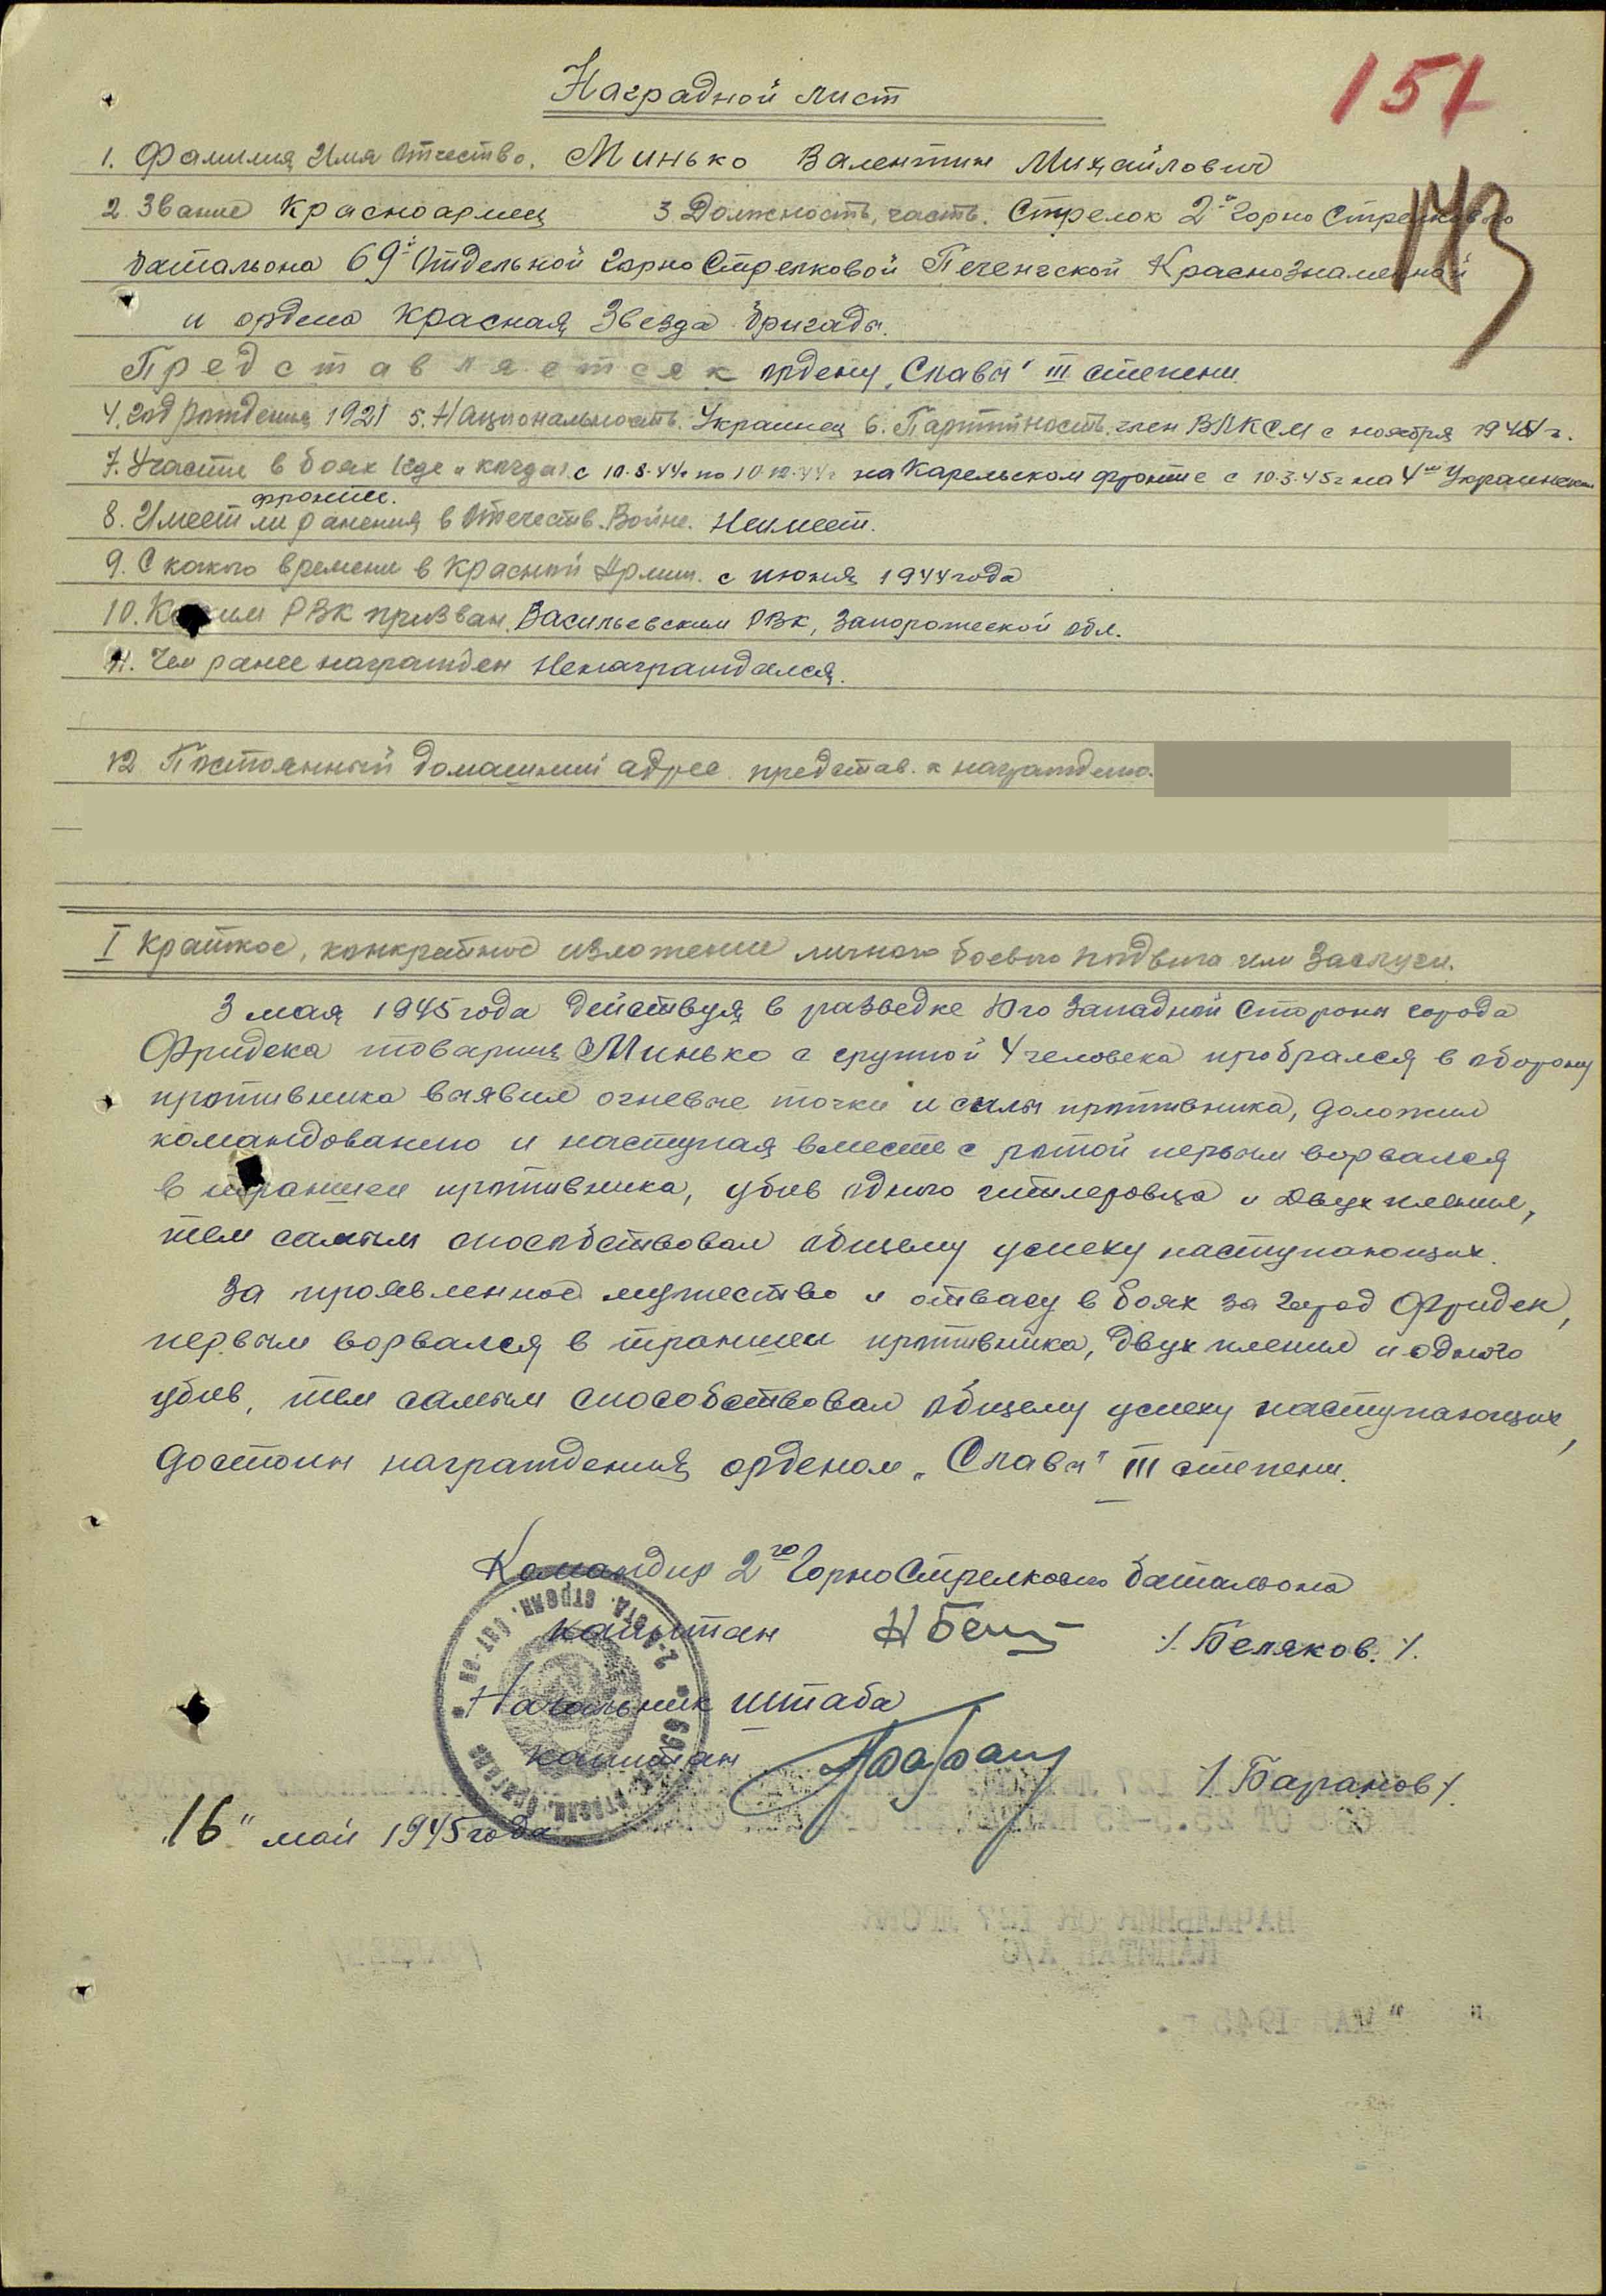 Наградной лист
151
1. Фамилия Имя Отчество. Минько Валентин Михайлович
2 Звание Красноармеец 3 Должность, часть. Стрелок 2го Горно Стрелкового
батальона 69й Отдельной Горно Стрелковой Печенгской Краснознаменной
и ордена Красная Звезда бригады.
Представляется к ордену „Славы" III степени
4. год рождения 1921 5. Национальность. Украинец 6. Партийность. член ВЛКСМ с ноября 1944 г.
7. Участие в боях (где и когда) с 10.8.44г по 10.12.44г на Карельском фронте с 10.3.45г на 4ом Украинском
фронте.
8. Имеет ли ранения в Отечеств. Войне. Неимеет.
9. С какого времени в Красной Армии. с июня 1944 года
10. Каким РВК призван. Васильевским РВК, Запорожской обл.
11. Чем ранее награжден Ненаграждался.
12 Постоянный домашний адрес представ. к награждению.
I Краткое, конкретное изложение личного боевого подвига или заслуги.
3 мая 1945 года действуя в разведке Юго Западной стороны города
Фридека товарищ Минько с группой 4 человека пробрался в оборону
противника выявил огневые точки и силы противника, доложил
командованию и наступая вместе с ротой первым ворвался
в траншеи противника, убив одного гитлеровца и двух пленил,
тем самым способствовал общему успеху наступающих.
За проявленное мужество и отвагу в боях за город Фридек,
первым ворвался в траншеи противника, двух пленил и одного
убив, тем самым способствовал общему успеху наступающих,
достоин награждения орденом „Славы" III степени.
Командир 2го Горно Стрелкового батальона
капитан /. Беляков. /.
Начальник штаба
капитан / Баранов /.
„16" май 1945 года
НАЧАЛЬНИК ОК 127 ЛГСК
КАПИТАН А/С
" " МАЯ 1945 г.